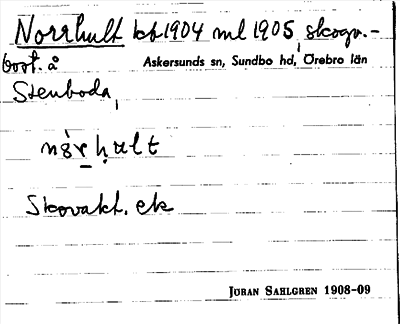 Norrhult kb 1904 ml 1905, skogv.-
bost. å Askersunds sn, Sundbo hd, Örebro län
Stenboda,
Skovakt. ek
JÖRAN SAHLGREN 1908-09